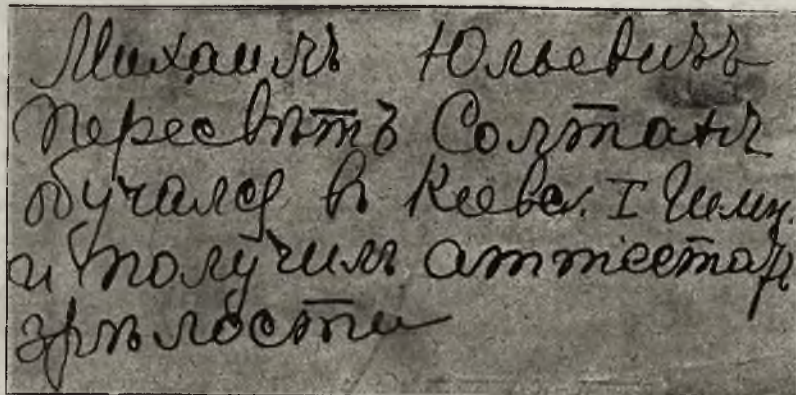 Михаилъ Юльевичъ
Пересвѣтъ Солтанъ
обучался в Киевс. I Гимн.
и получилъ аттестат
зрѣлости